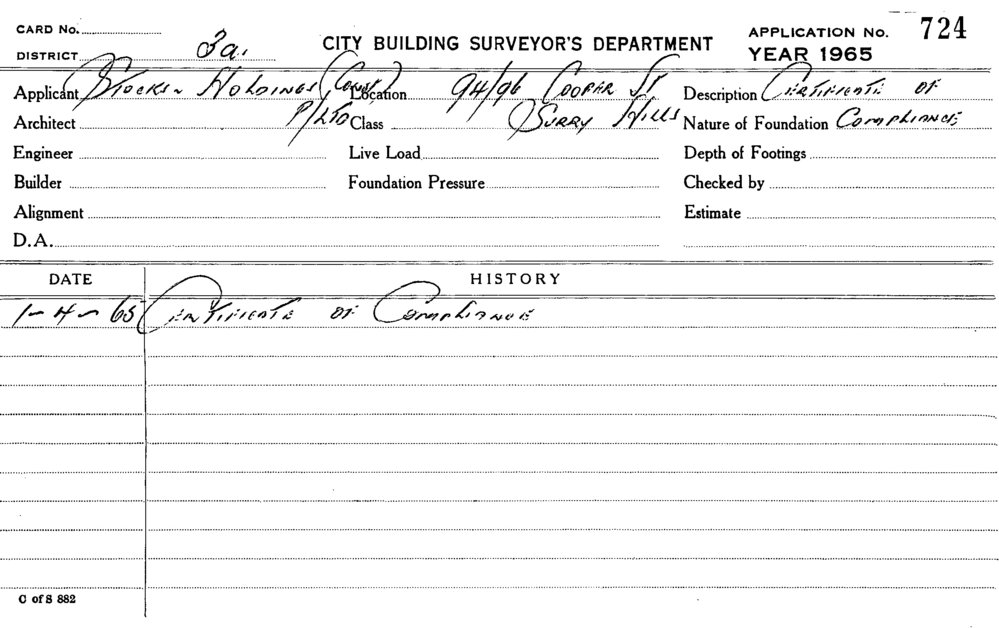 CARD No.
CITY BUILDING SURVEYOR'S DEPARTMENT
APPLICATION No. 724
DISTRICT 3a.
YEAR 1965
Applicant Holdings Location 94/96 Cooper St Description Certificate of
Architect P/Ltd Class Surry Hills Nature of Foundation Compliance
Engineer Live Load Depth of Footings
Builder Foundation Pressure Checked by
Alignment Estimate
D.A.
DATE HISTORY
1-4-65 Certificate of Compliance
C of S 882